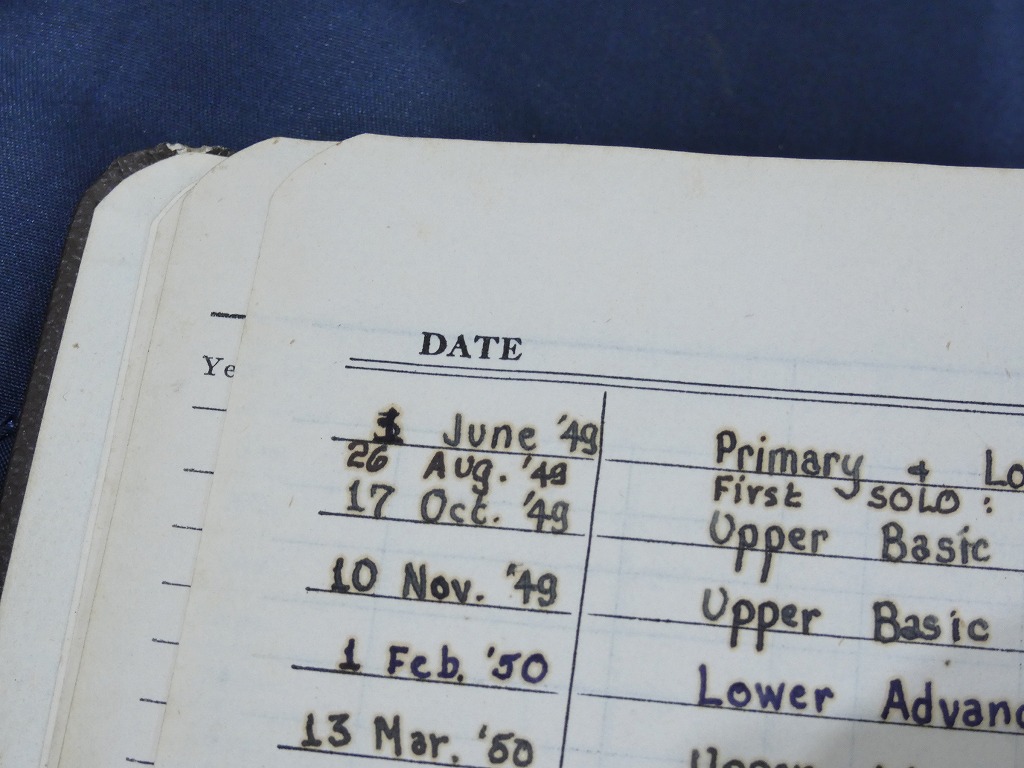 DATE
Ye
1 June '49 Primary + Lo
26 Aug. '49 First SOLO :
17 Oct. '49 Upper Basic
10 Nov. '49 Upper Basic
1 Feb. '50 Lower Advanc
13 Mar. '50 Upper